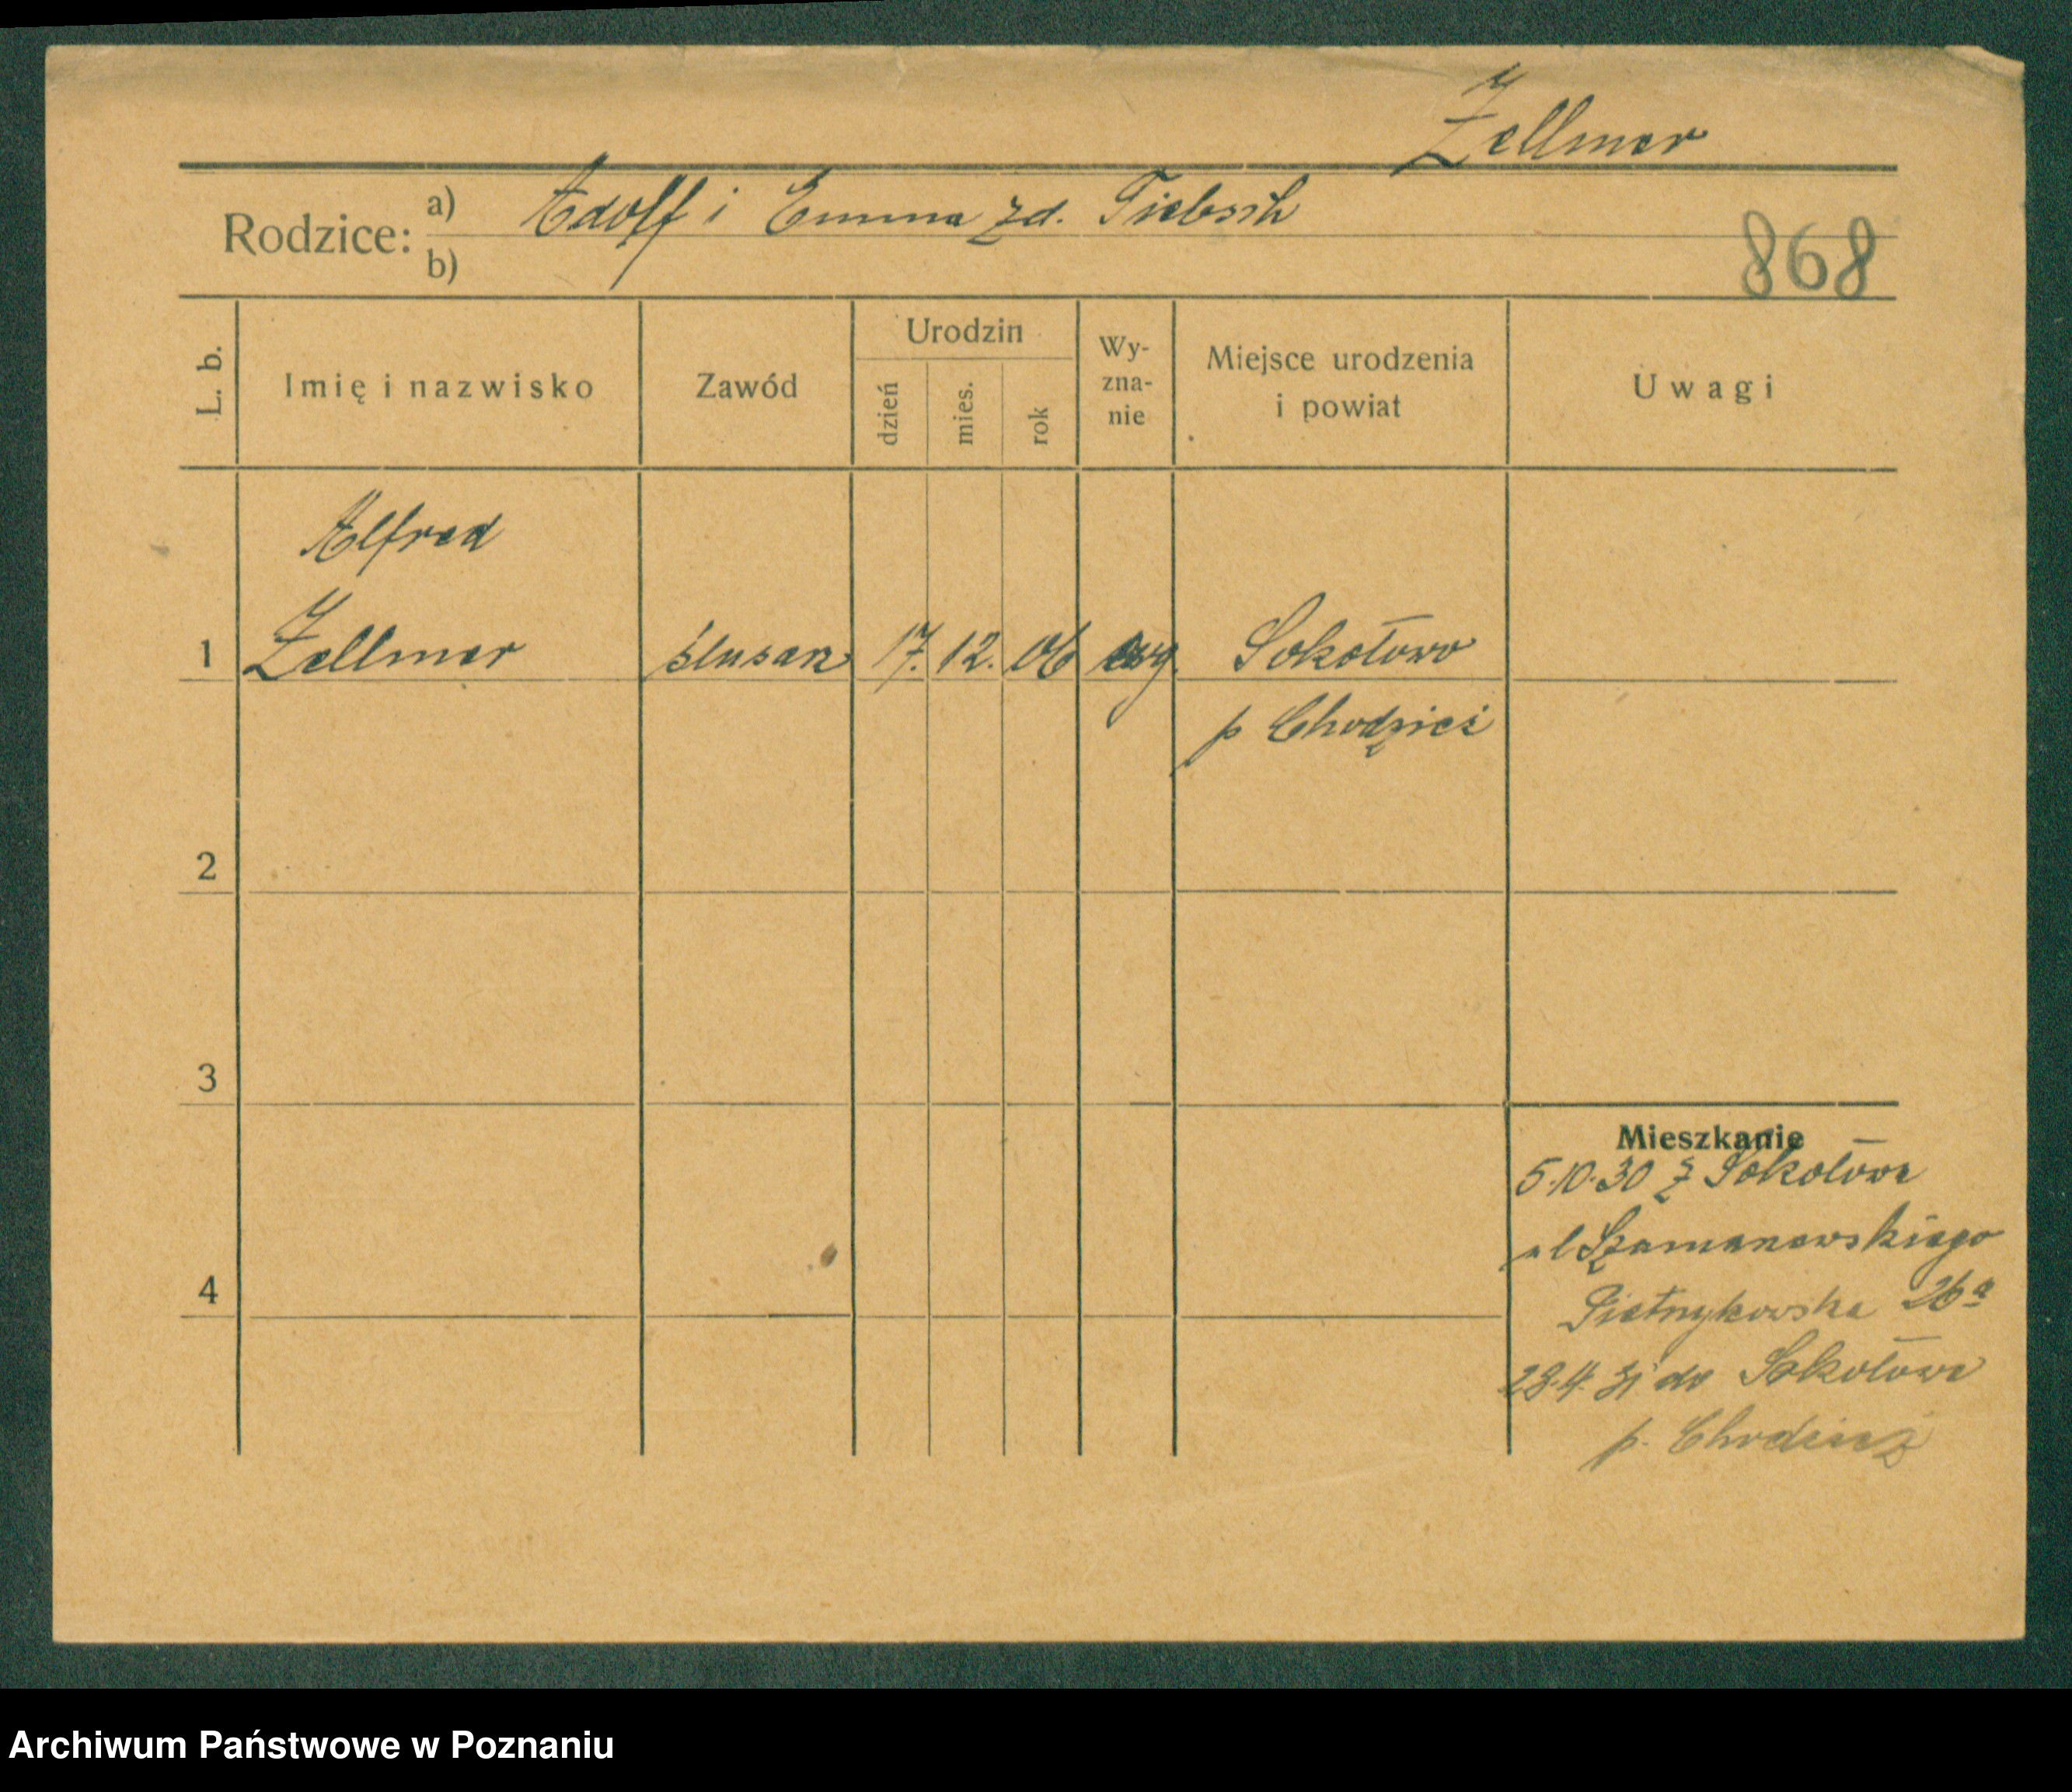 Zellmer
Rodzice: a) Adolf i Emma zd. Tiebsch
b)
868
L. b.
Imię i nazwisko
Zawód
Urodzin
dzień
mies.
rok
Wy-
zna-
nie
Miejsce urodzenia
i powiat
Uwagi
Alfred
1 Zellmer ślusarz 17. 12. 06 ewg. Sokołowo
p Chodzież
2
3
4
Mieszkanie
5.10.30 z Sokołowa
ul
26a
28.4.31 do Sokołowa
p. Chodzież
Archiwum Państwowe w Poznaniu